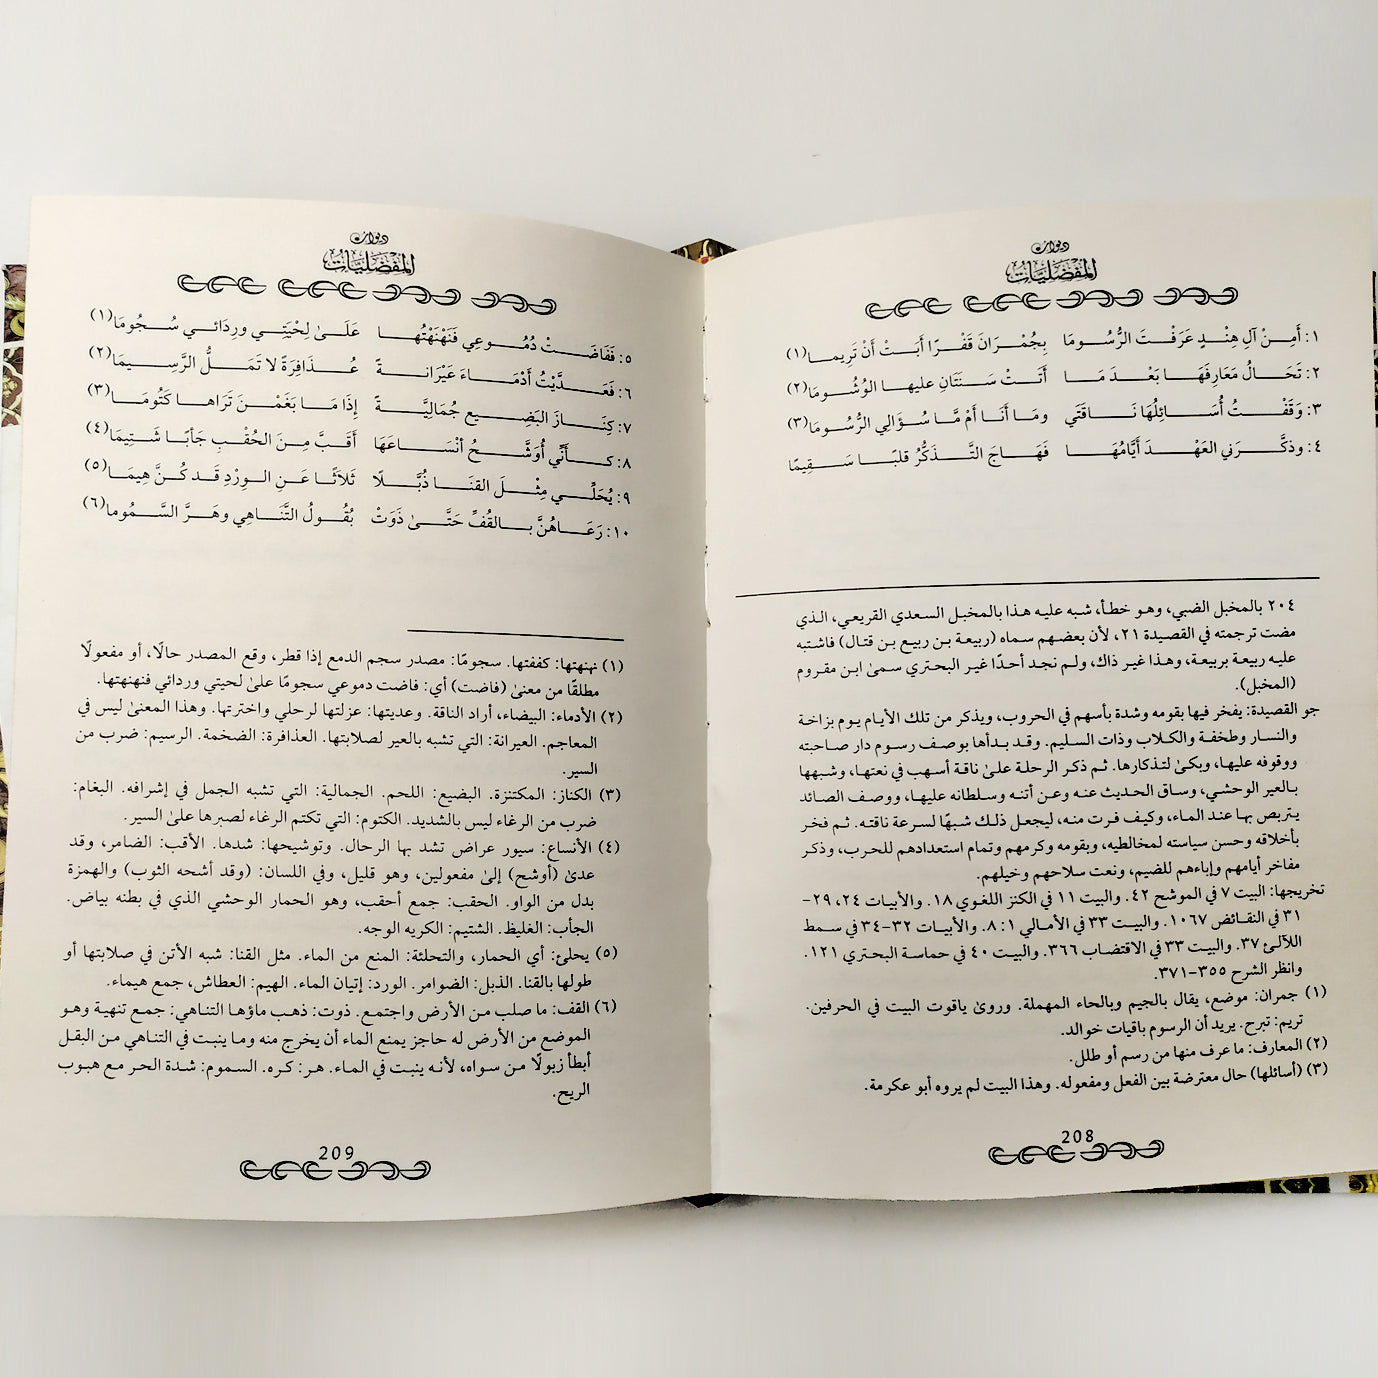 ديوان
المفضليات
١: أَمِنْ آلِ هِنْدٍ عَرَفْتَ الرُّسُومَا بِجُمْرَانَ قَفْرًا أَبَتْ أَنْ تَرِيما(١)
٢: تَخَالُ مَعَارِفَهَا بَعْدَ مَا أَتَتْ سَنَتَانِ عليها الوُشُومَا(٢)
٣: وَقَفْتُ أُسَائِلُهَا نَاقَتَي ومَا أَنَا أَمْ مَّا سُؤَالِي الرُّسُومَا(٣)
٤: وذكَّرَني العَهْدَ أَيَّامُهَا فَهَاجَ التَّذَكُّرُ قلبًا سَقِيمًا
٢٠٤ بالمخبل الضبي، وهو خطأ، شبه عليه هذا بالمخبل السعدي القريعي، الذي
مضت ترجمته في القصيدة ٢١، لأن بعضهم سماه (ربيعة بن ربيع بن قتال) فاشتبه
عليه ربيعة بربيعة، وهذا غير ذاك، ولم نجد أحدًا غير البحتري سمىٰ ابن مقروم
(المخبل).
جو القصيدة: يفخر فيها بقومه وشدة بأسهم في الحروب، ويذكر من تلك الأيام يوم بزاخة
والنسار وطخفة والكلاب وذات السليم. وقد بدأها بوصف رسوم دار صاحبته
ووقوفه عليها، وبكىٰ لتذكارها. ثم ذكر الرحلة علىٰ ناقة أسهب في نعتها، وشبهها
بالعير الوحشي، وساق الحديث عنه وعن أتنه وسلطانه عليها، ووصف الصائد
يتربص بها عند الماء، وكيف فرت منه، ليجعل ذلك شبهًا لسرعة ناقته. ثم فخر
بأخلاقه وحسن سياسته لمخالطيه، وبقومه وكرمهم وتمام استعدادهم للحرب، وذكر
مفاخر أيامهم وإباءهم للضيم، ونعت سلاحهم وخيلهم.
تخريجها: البيت ٧ في الموشح ٤٢. والبيت ١١ في الكنز اللغوي ١٨. والأبيات ٢٤، ٢٩-
٣١ في النقائض ١٠٦٧. والبيت ٣٣ في الأمالي ١: ٨. والأبيات ٣٢-٣٤ في سمط
اللآلئ ٣٧. والبيت ٣٣ في الاقتضاب ٣٦٦. والبيت ٤٠ في حماسة البحتري ١٢١.
وانظر الشرح ٣٥٥-٣٧١.
(١) جمران: موضع، يقال بالجيم وبالحاء المهملة. وروىٰ ياقوت البيت في الحرفين.
تريم: تبرح. يريد أن الرسوم باقيات خوالد.
(٢) المعارف: ما عرف منها من رسم أو طلل.
(٣) (أسائلها) حال معترضة بين الفعل ومفعوله. وهذا البيت لم يروه أبو عكرمة.
208
ديوان
المفضليات
٥: فَفَاضَتْ دُمُوعِي فَنَهْنَهْتُهَا عَلَىٰ لِحْيَتِي ورِدَائي سُجُومَا(١)
٦: فَعَدَّيْتُ أَدْمَاءَ عَيْرَانةً عُذَافِرَةً لا تَمَلُّ الرَّسِيمَا(٢)
٧: كِنَازَ البَضِيعِ جُمَالِيَّةً إِذَا مَا بَغَمْنَ تَرَاها كَتُومَا(٣)
٨: كأَنِّي أُوَشِّحُ أَنْسَاعَهَا أَقَبَّ مِنَ الحُقْبِ جَأبًا شَتِيمَا(٤)
٩: يُحَلِّي مِثْلَ القنَا ذُبَّلًا ثَلاثًا عَنِ الوِرْدِ قَد كُنَّ هِيمَا(٥)
١٠: رَعَاهُنَّ بالقُفِّ حَتَّىٰ ذَوَتْ بُقُولُ التَّنَاهِي وهَرَّ السَّمُوما(٦)
(١) نهنهتها: كففتها. سجومًا: مصدر سجم الدمع إذا قطر، وقع المصدر حالًا، أو مفعولًا
مطلقًا من معنىٰ (فاضت) أي: فاضت دموعي سجومًا علىٰ لحيتي وردائي فنهنهتها.
(٢) الأدماء: البيضاء، أراد الناقة. وعديتها: عزلتها لرحلي واخترتها. وهذا المعنىٰ ليس في
المعاجم. العيرانة: التي تشبه بالعير لصلابتها. العذافرة: الضخمة. الرسيم: ضرب من
السير.
(٣) الكناز: المكتنزة. البضيع: اللحم. الجمالية: التي تشبه الجمل في إشرافه. البغام:
ضرب من الرغاء ليس بالشديد. الكتوم: التي تكتم الرغاء لصبرها علىٰ السير.
(٤) الأنساع: سيور عراض تشد بها الرحال. وتوشيحها: شدها. الأقب: الضامر، وقد
عدىٰ (أوشح) إلىٰ مفعولين، وهو قليل، وفي اللسان: (وقد أشحه الثوب) والهمزة
بدل من الواو. الحقب: جمع أحقب، وهو الحمار الوحشي الذي في بطنه بياض.
الجأب: الغليظ. الشتيم: الكريه الوجه.
(٥) يحلئ: أي الحمار، والتحلئة: المنع من الماء. مثل القنا: شبه الأتن في صلابتها أو
طولها بالقنا. الذبل: الضوامر. الورد: إتيان الماء. الهيم: العطاش، جمع هيماء.
(٦) القف: ما صلب من الأرض واجتمع. ذوت: ذهب ماؤها التناهي: جمع تنهية وهو
الموضع من الأرض له حاجز يمنع الماء أن يخرج منه وما ينبت في التناهي من البقل
أبطأ زبولًا من سواه، لأنه ينبت في الماء. هر: كره. السموم: شدة الحر مع هبوب
الريح.
209